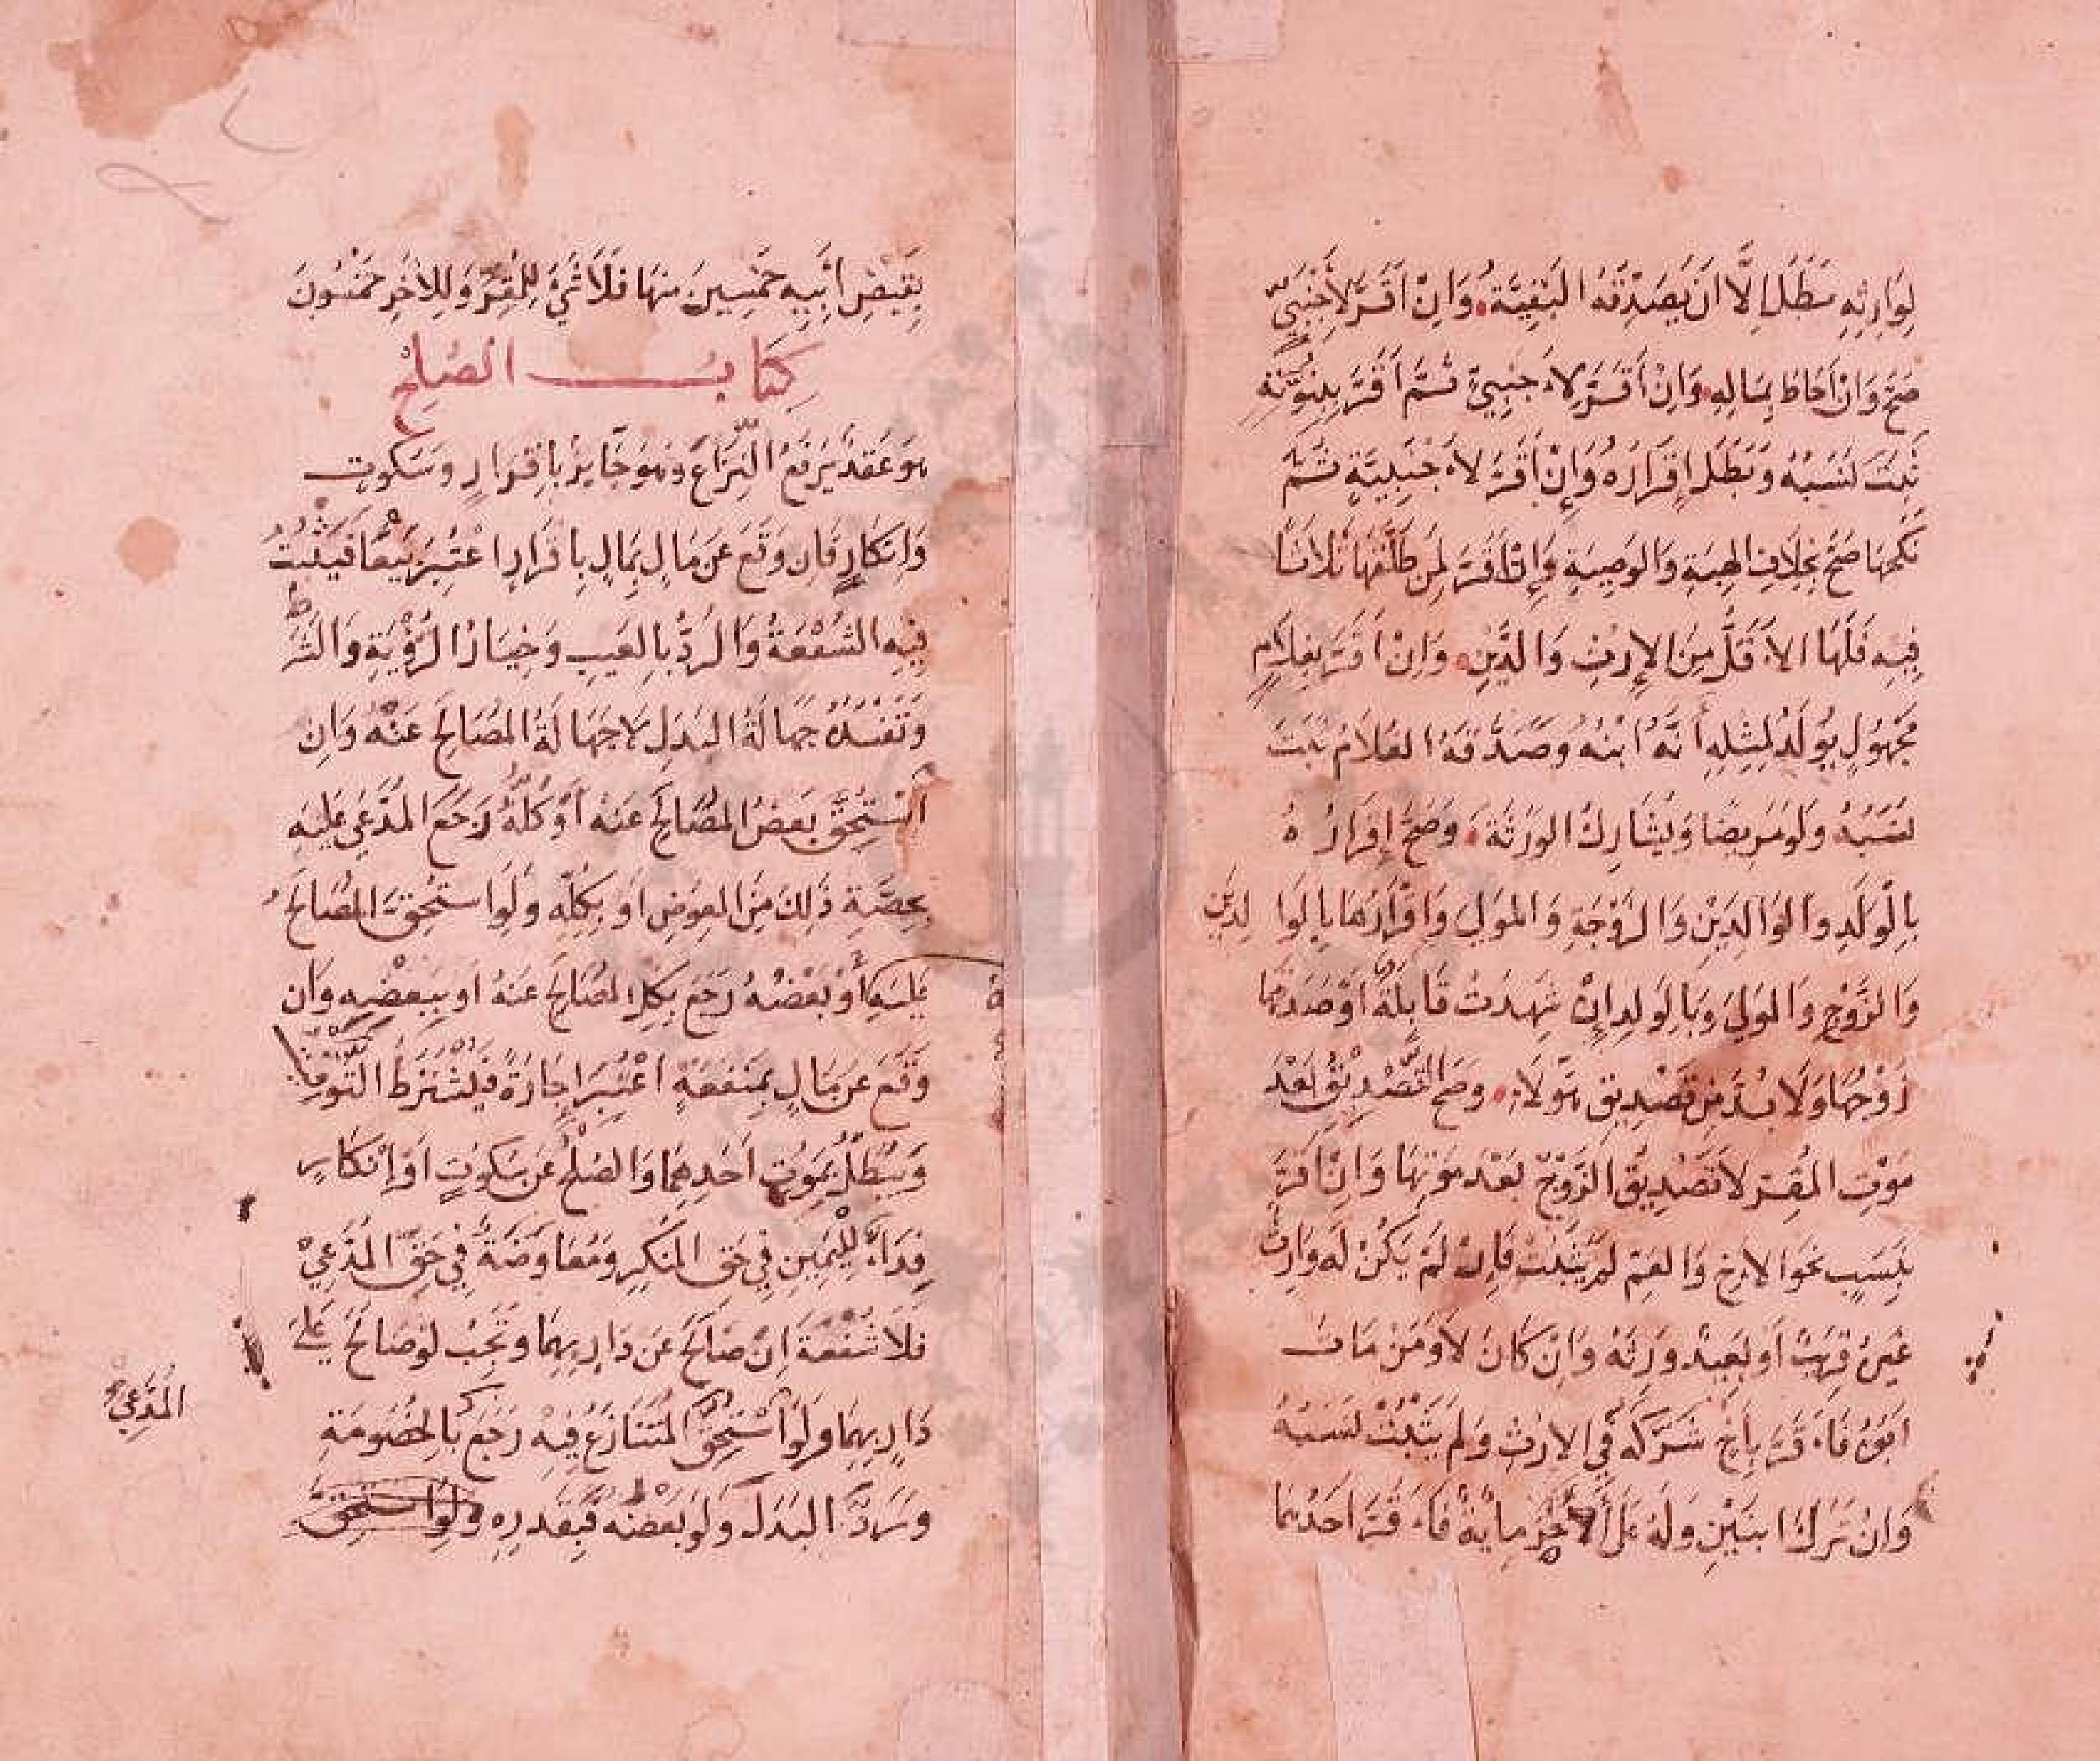 لِوَارِثِهِ بَطَلَ إِلَّا أَنْ يُصَدِّقَهُ الْبَقِيَّةُ وَإِنْ أَقَرَّ لِأَجْنَبِيٍّ
صَحَّ وَإِنْ أَحَاطَ بِمَالِهِ وَإِنْ أَقَرَّ لِأَجْنَبِيٍّ ثُمَّ أَقَرَّ بِبُنُوَّتِهِ
ثَبَتَ نَسَبُهُ وَبَطَلَ إِقْرَارُهُ وَإِنْ أَقَرَّ لِأَجْنَبِيَّةٍ ثُمَّ
نَكَحَهَا صَحَّ بِخِلَافِ الْهِبَةِ وَالْوَصِيَةِ وَإِنْ أَقَرَّ لِمَنْ طَلَّقَهَا ثَلَاثًا
فِيهِ فَلَهَا الْأَقَلُّ مِنَ الْإِرْثِ وَالدَّيْنِ وَإِنْ أَقَرَّ بِغُلَامٍ
مَجْهُولٍ يُولَدُ لِمِثْلِهِ أَنَّهُ ابْنُهُ وَصَدَّقَهُ الْغُلَامُ ثَبَتَ
نَسَبُهُ وَلَوْ مَرِيضًا وَيُشَارِكُ الْوَرَثَةَ وَصَحَّ إِقْرَارُهُ
بِالْوَلَدِ وَالْوَالِدَيْنِ وَالزَّوْجَةِ وَالْمَوْلَى وَإِقْرَارُهَا بِالْوَالِدَيْنِ
وَالزَّوْجِ وَالْمَوْلَى وَبِالْوَلَدِ إِنْ شَهِدَتْ قَابِلَةٌ أَوْ صَدَّقَهَا
زَوْجُهَا وَلَا بُدَّ مِنْ تَصْدِيقِ هَؤُلَاءِ وَصَحَّ التَّصْدِيقُ بَعْدَ
مَوْتِ الْمُقِرِّ لَا تَصْدِيقُ الزَّوْجِ بَعْدَ مَوْتِهَا وَإِنْ أَقَرَّ
بِنَسَبٍ نَحْوَ الْأَخِ وَالْعَمِّ لَمْ يَثْبُتْ فَإِنْ لَمْ يَكُنْ لَهُ وَارِثٌ
غَيْرُهُ قَرِيبٌ أَوْ بَعِيدٌ وَرِثَهُ وَإِنْ كَانَ لَا وَمَنْ مَاتَ
أَبُوهُ فَأَقَرَّ بِأَخٍ شَرِكَهُ فِي الْإِرْثِ وَلَمْ يَثْبُتْ نَسَبُهُ
وَإِنْ تَرَكَ ابْنَيْنِ وَلَهُ عَلَى آخَرَ مِايَةٌ فَأَقَرَّ أَحَدُهُمَا
بِقَبْضِ أَبِيهِ خَمْسِينَ مِنْهَا فَلَا شَيْءَ لِلْمُقِرِّ وَلِلْآخَرِ خَمْسُونَ
كِتَابُ الصُّلْحِ
هُوَ عَقْدٌ يَرْفَعُ النِّزَاعَ وَهُوَ جَايِزٌ بِإِقْرَارٍ وَسُكُوتٍ
وَإِنْكَارٍ فَإِنْ وَقَعَ عَنْ مَالٍ بِمَالٍ بِإِقْرَارٍ اعْتُبِرَ بَيْعًا فَيَثْبُتُ
فِيهِ الشُّفْعَةُ وَالرَّدُّ بِالْعَيْبِ وَخِيَارُ الرُّؤْيَةِ وَالشَّرْطِ
وَتُفْسِدُهُ جَهَالَةُ الْبَدَلِ لَا جَهَالَةُ الْمُصَالَحِ عَنْهُ وَإِنْ
اسْتُحِقَّ بَعْضُ الْمُصَالَحِ عَنْهُ أَوْ كُلُّهُ رَجَعَ الْمُدَّعَى عَلَيْهِ
بِحِصَّةِ ذَلِكَ مِنَ الْعِوَضِ أَوْ بِكُلِّهِ وَلَوِ اسْتُحِقَّ الْمُصَالَحُ
عَلَيْهِ أَوْ بَعْضُهُ رَجَعَ بِكُلِّ الْمُصَالَحِ عَنْهُ أَوْ بِبَعْضِهِ وَإِنْ
وَقَعَ عَنْ مَالٍ بِمَنْفَعَةٍ اعْتُبِرَ إِجَارَةً فَيُشْتَرَطُ التَّوْقِيتُ
وَيَبْطُلُ بِمَوْتِ أَحَدِهِمَا وَالصُّلْحُ عَنْ سُكُوتٍ أَوْ إِنْكَارٍ
فِدَاءٌ لِلْيَمِينِ فِي حَقِّ الْمُنْكِرِ وَمُعَاوَضَةٌ فِي حَقِّ الْمُدَّعِيْ
فَلَا شُفْعَةَ إِنْ صَالَحَ عَنْ دَارٍ بِهِمَا وَتَجِبُ لَوْ صَالَحَ عَلَى
دَارٍ بِهِمَا وَلَوِ اسْتُحِقَّ الْمُتَنَازَعُ فِيهِ رَجَعَ بِالْخُصُومَةِ
وَرَدَّ الْبَدَلَ وَلَوْ بَعْضُهُ فَبِقَدْرِهِ وَلَوِ اسْتُحِقَّ
الْمُدَّعِيْ